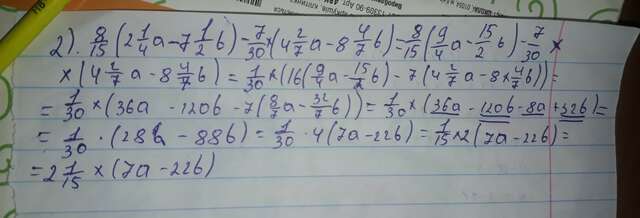 13309-90 Арт
2). 8/15 (2 1/4 a - 7 1/2 b) - 7/30 × (4 2/7 a - 8 4/7 b) = 8/15 (9/4 a - 15/2 b) - 7/30 ×
× (4 2/7 a - 8 4/7 b) = 1/30 × (16(9/4 a - 15/2 b) - 7(4 2/7 a - 8 × 4/7 b)) =
= 1/30 × (36a - 120b - 7(8/7 a - 32/7 b)) = 1/30 × (36a - 120b - 8a + 32b) =
= 1/30 · (28a - 88b) = 1/30 · 4(7a - 22b) = 1/15 × 2(7a - 22b) =
= 2 1/15 × (7a - 22b)